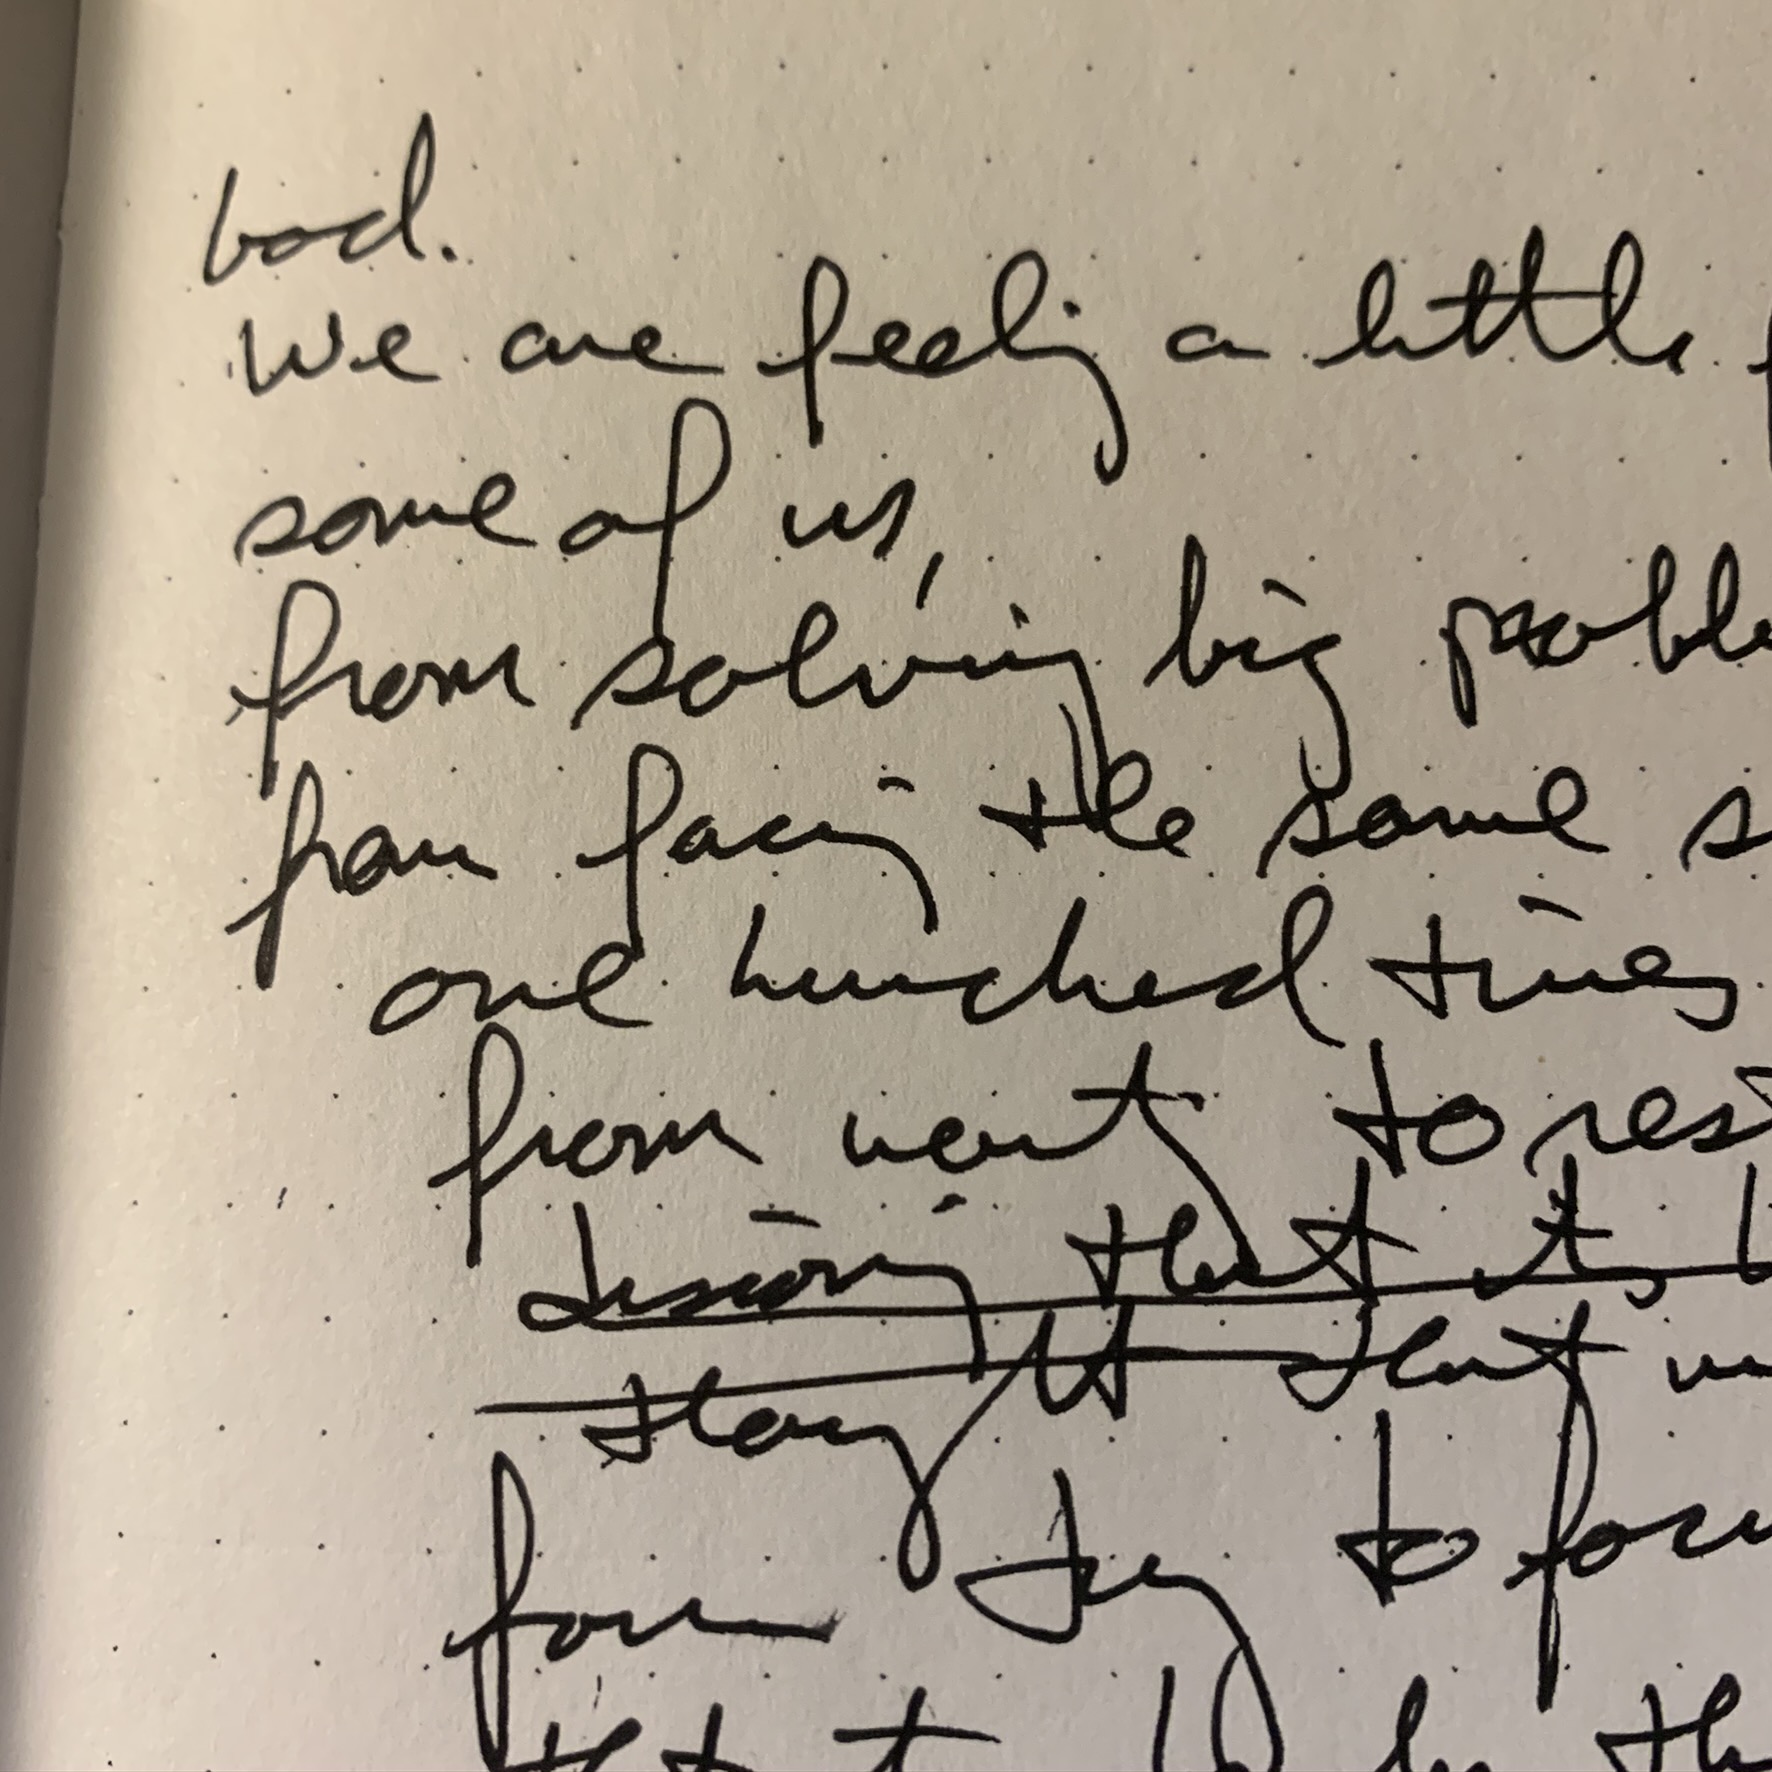 bad.
We are feeling a little
some of us,
from solving big proble
from facing the same s
one hundred times
from wanting to rest
that its
that
from trying to focu
that